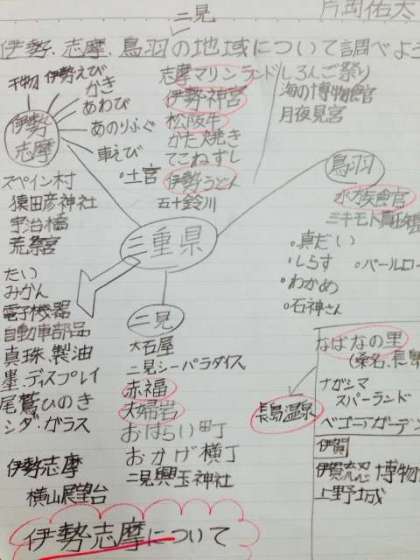 二見
片岡佑太
伊勢、志摩、鳥羽の地域について調べよう
干物
伊勢えび
かき
あわび
あのりふぐ
車えび
伊勢
志摩
・土宮
志摩マリンランド
伊勢神宮
松阪牛
かた焼き
てこねずし
伊勢うどん
五十鈴川
しろんご祭り
海の博物館
月夜見宮
スペイン村
猿田彦神社
宇治橋
荒祭宮
三重県
鳥羽
水族館
ミキモト真珠
・真だい
・しらす
・わかめ
・石神さん
・パールロー
たい
みかん
電子機器
自動車部品
真珠、製油
墨、ディスプレイ
尾鷲ひのき
シダ、ガラス
伊勢志摩
横山展望台
二見
大石屋
二見シーパラダイス
赤福
夫婦岩
おはらい町
おかげ横丁
二見興玉神社
長島温泉
なばなの里
(桑名、長島
ナガシマ
スパーランド
ベゴニアガーデン
伊賀
伊賀流忍博物
上野城
伊勢志摩について